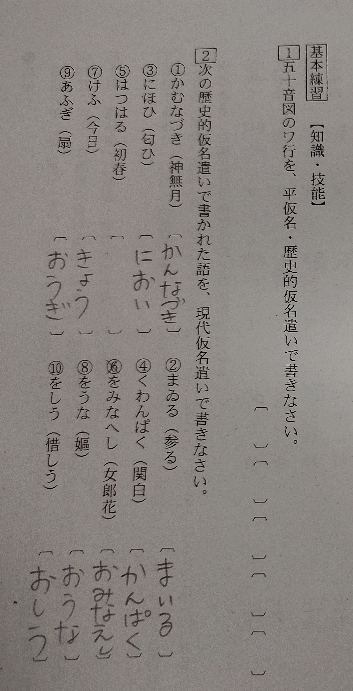 基本練習 【知識・技能】
1 五十音図のワ行を、平仮名・歴史的仮名遣いで書きなさい。
〔 〕〔 〕〔 〕〔 〕〔 〕
2 次の歴史的仮名遣いで書かれた語を、現代仮名遣いで書きなさい。
①かむなづき（神無月）〔かんなづき〕 ②まゐる（参る）〔まいる〕
③にほひ（匂ひ）〔におい〕 ④くわんぱく（関白）〔かんぱく〕
⑤はつはる（初春）〔 〕 ⑥をみなへし（女郎花）〔おみなえし〕
⑦けふ（今日）〔きょう〕 ⑧をうな（嫗）〔おうな〕
⑨あふぎ（扇）〔おうぎ〕 ⑩をしう（惜しう）〔おしう〕